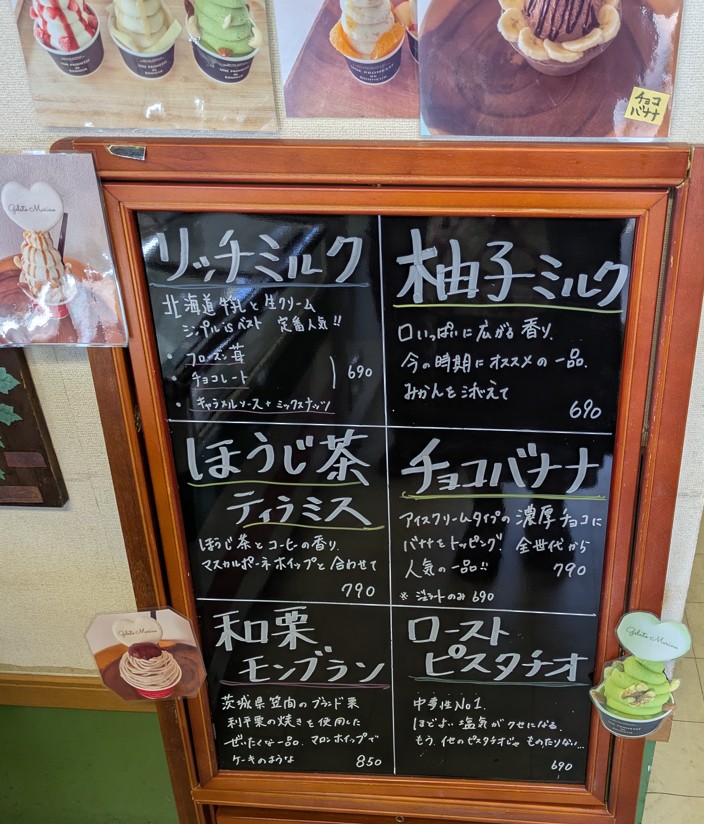 UNE PROMESSE
DE
BONHEUR
チョコ
バナナ
Gelato Marino
リッチミルク
北海道牛乳と生クリーム
シンプル is ベスト 定番人気!!
・フローズン苺
・チョコレート
690
・キャラメルソース+ミックスナッツ
柚子ミルク
口いっぱいに広がる香り。
今の時期にオススメの一品。
みかんを添えて
690
ほうじ茶
ティラミス
ほうじ茶とコーヒーの香り。
マスカルポーネホイップと合わせて
790
チョコバナナ
アイスクリームタイプの濃厚チョコに
バナナをトッピング! 全世代から
人気の一品!! 790
※ジェラートのみ 690
和栗
モンブラン
茨城県笠間のブランド栗
利平栗の焼きを使用した
ぜいたくな一品。マロンホイップで
ケーキのような 850
ロースト
ピスタチオ
中毒性No1.
ほどよい塩気がクセになる。
もう、他のピスタチオじゃ ものたりない…
690
Gelato Marino
Gelato Marino